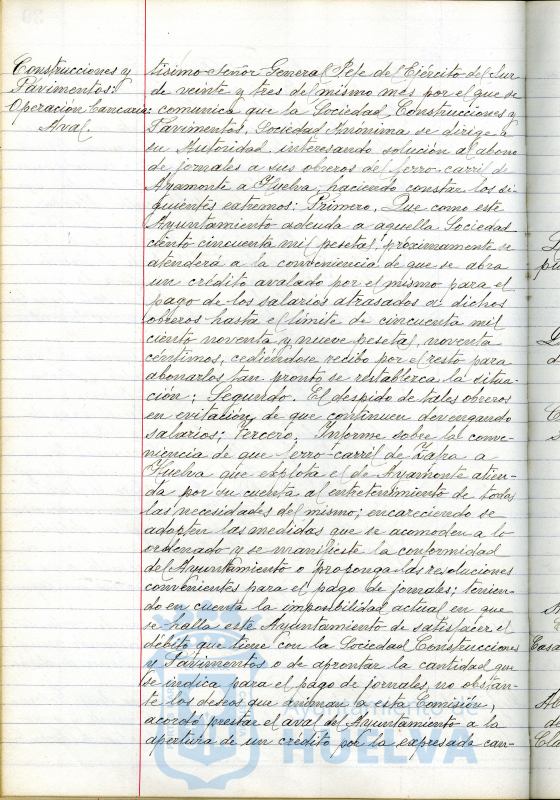 Construcciones y
Pavimentos:
Operación bancaria:
Aval.
tísimo Señor General Jefe del Ejército del Sur
de veinte y tres del mismo mes por el que se
comunica que la Sociedad, Construcciones y
Pavimentos, Sociedad Anónima se dirige a
su Autoridad interesando solución al abono
de jornales a sus obreros del ferro-carril de
Ayamonte a Huelva, haciendo constar los si-
guientes extremos: Primero. Que como este
Ayuntamiento adeuda a aquella Sociedad
ciento cincuenta mil pesetas próximamente se
atenderá a la conveniencia de que se abra
un crédito avalado por el mismo para el
pago de los salarios atrasados a dichos
obreros hasta el límite de cincuenta mil
ciento noventa y nueve pesetas, noventa
céntimos, cediéndose recibo por el resto para
abonarlos tan pronto se restablezca la situa-
ción; Segundo. El despido de tales obreros
en evitación de que continuen devengando
salarios; Tercero, Informe sobre la conve-
niencia de que ferro-carril de Zafra a
Huelva que explota el de Ayamonte atien-
da por su cuenta al entretenimiento de todas
las necesidades del mismo; encareciendo se
adopten las medidas que se acomoden a lo
ordenado y se manifieste la conformidad
del Ayuntamiento o proponga las resoluciones
convenientes para el pago de jornales; tenien-
do en cuenta la imposibilidad actual en que
se halla este Ayuntamiento de satisfacer el
débito que tiene con la Sociedad Construcciones
y Pavimentos o de aprontar la cantidad que
se indica para el pago de jornales, no obstan-
te los deseos que animan a esta Comisión,
acordó prestar el aval del Ayuntamiento a la
apertura de un crédito por la expresada can-
Ayuntamiento de
HUELVA